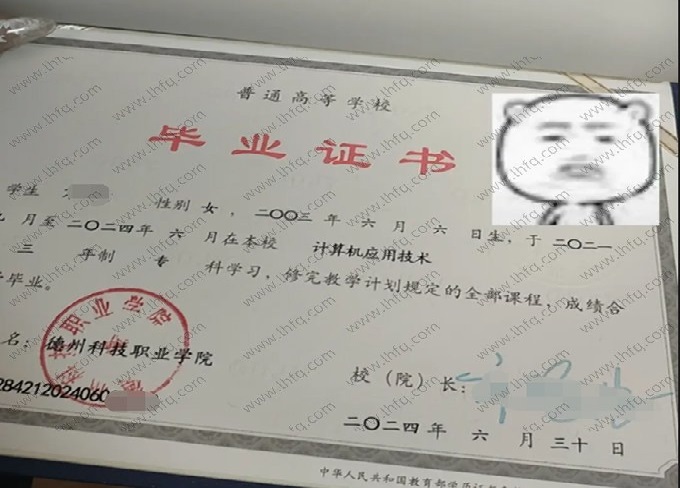 普通高等学校
毕业证书
学生
性别 女，二〇〇三 年 六 月 六 日生，于 二〇二一
月至 二〇二四年 六 月在本校 计算机应用技术
三 年制 专 科学习，修完教学计划规定的全部课程，成绩合
毕业。
名：德州科技职业学院
校（院）长：
84212024060
二〇二四 年 六 月 三十 日
中华人民共和国教育部学历证
www.lhfq.com